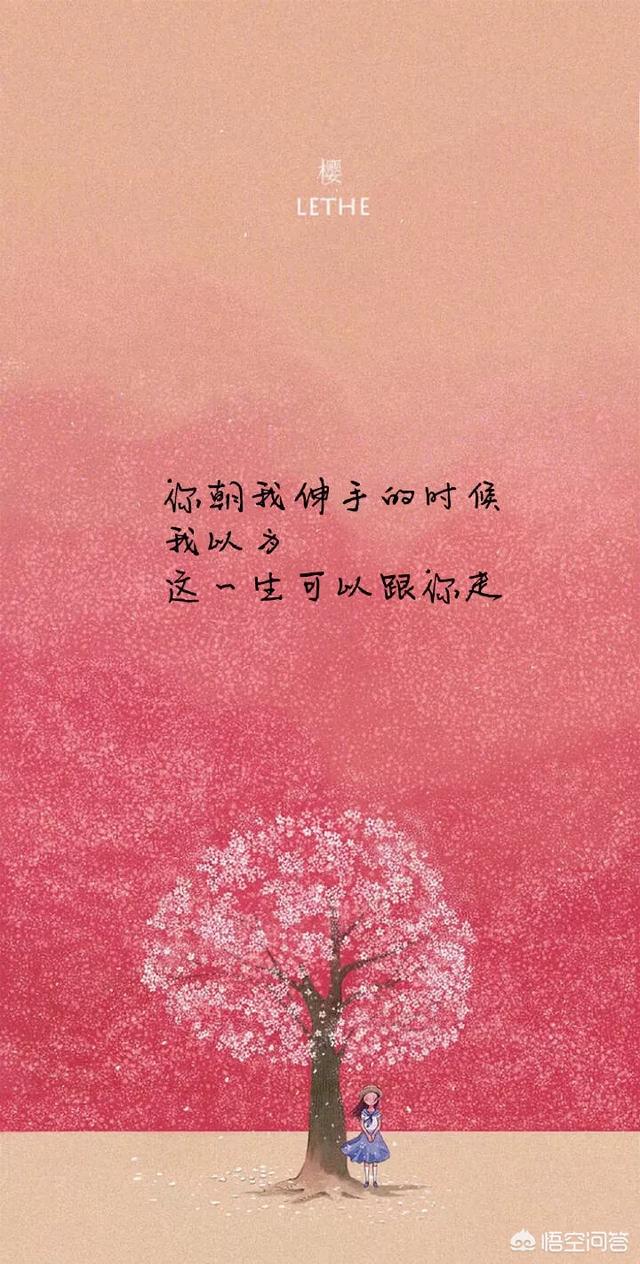 樱
LETHE
你朝我伸手的时候
我以为
这一生可以跟你走
悟空问答